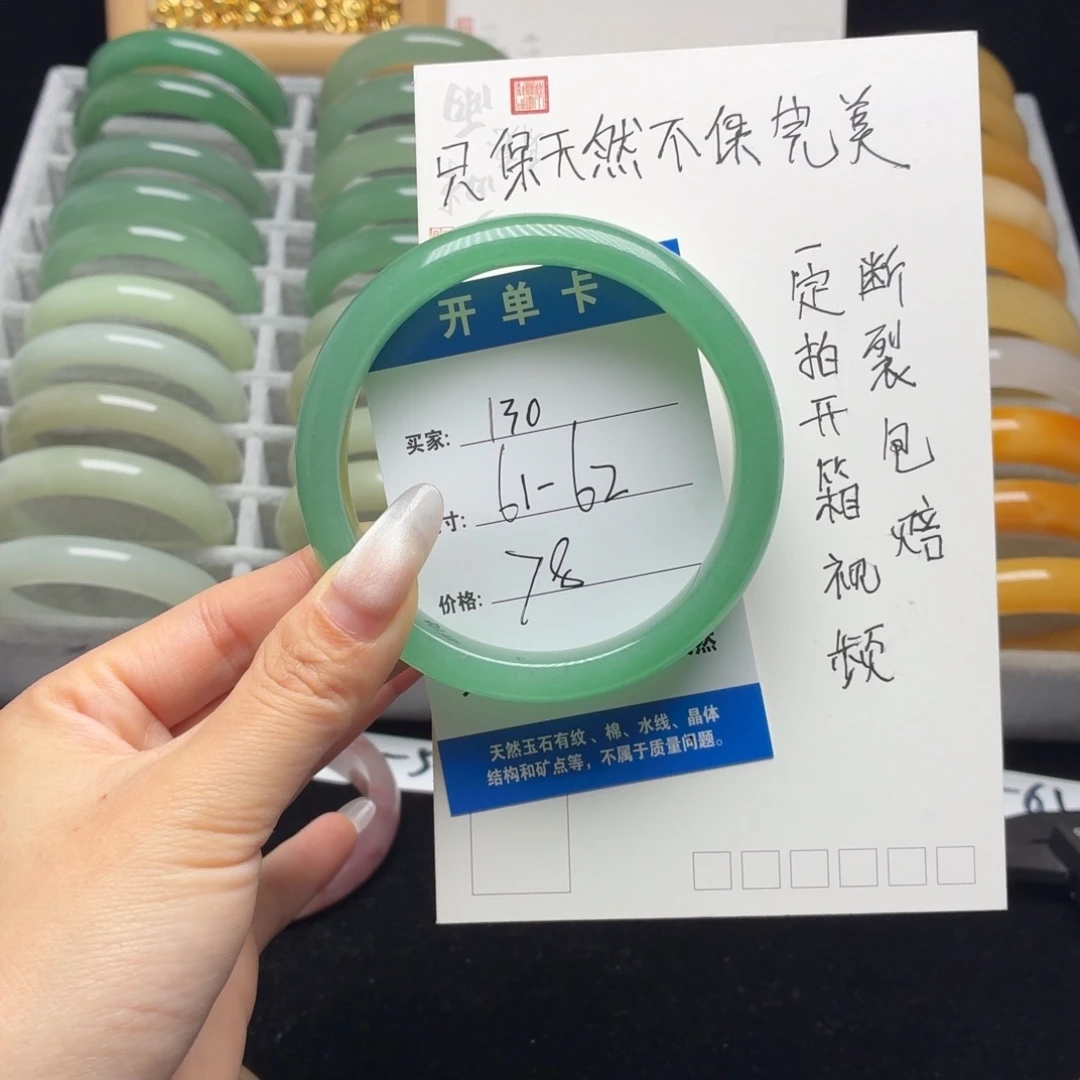 只保天然不保完美
断裂包赔
一定拍开箱视频
开单卡
买家: 130
寸: 61-62
价格: 78
然
天然玉石有纹、棉、水线、晶体
结构和矿点等，不属于质量问题。